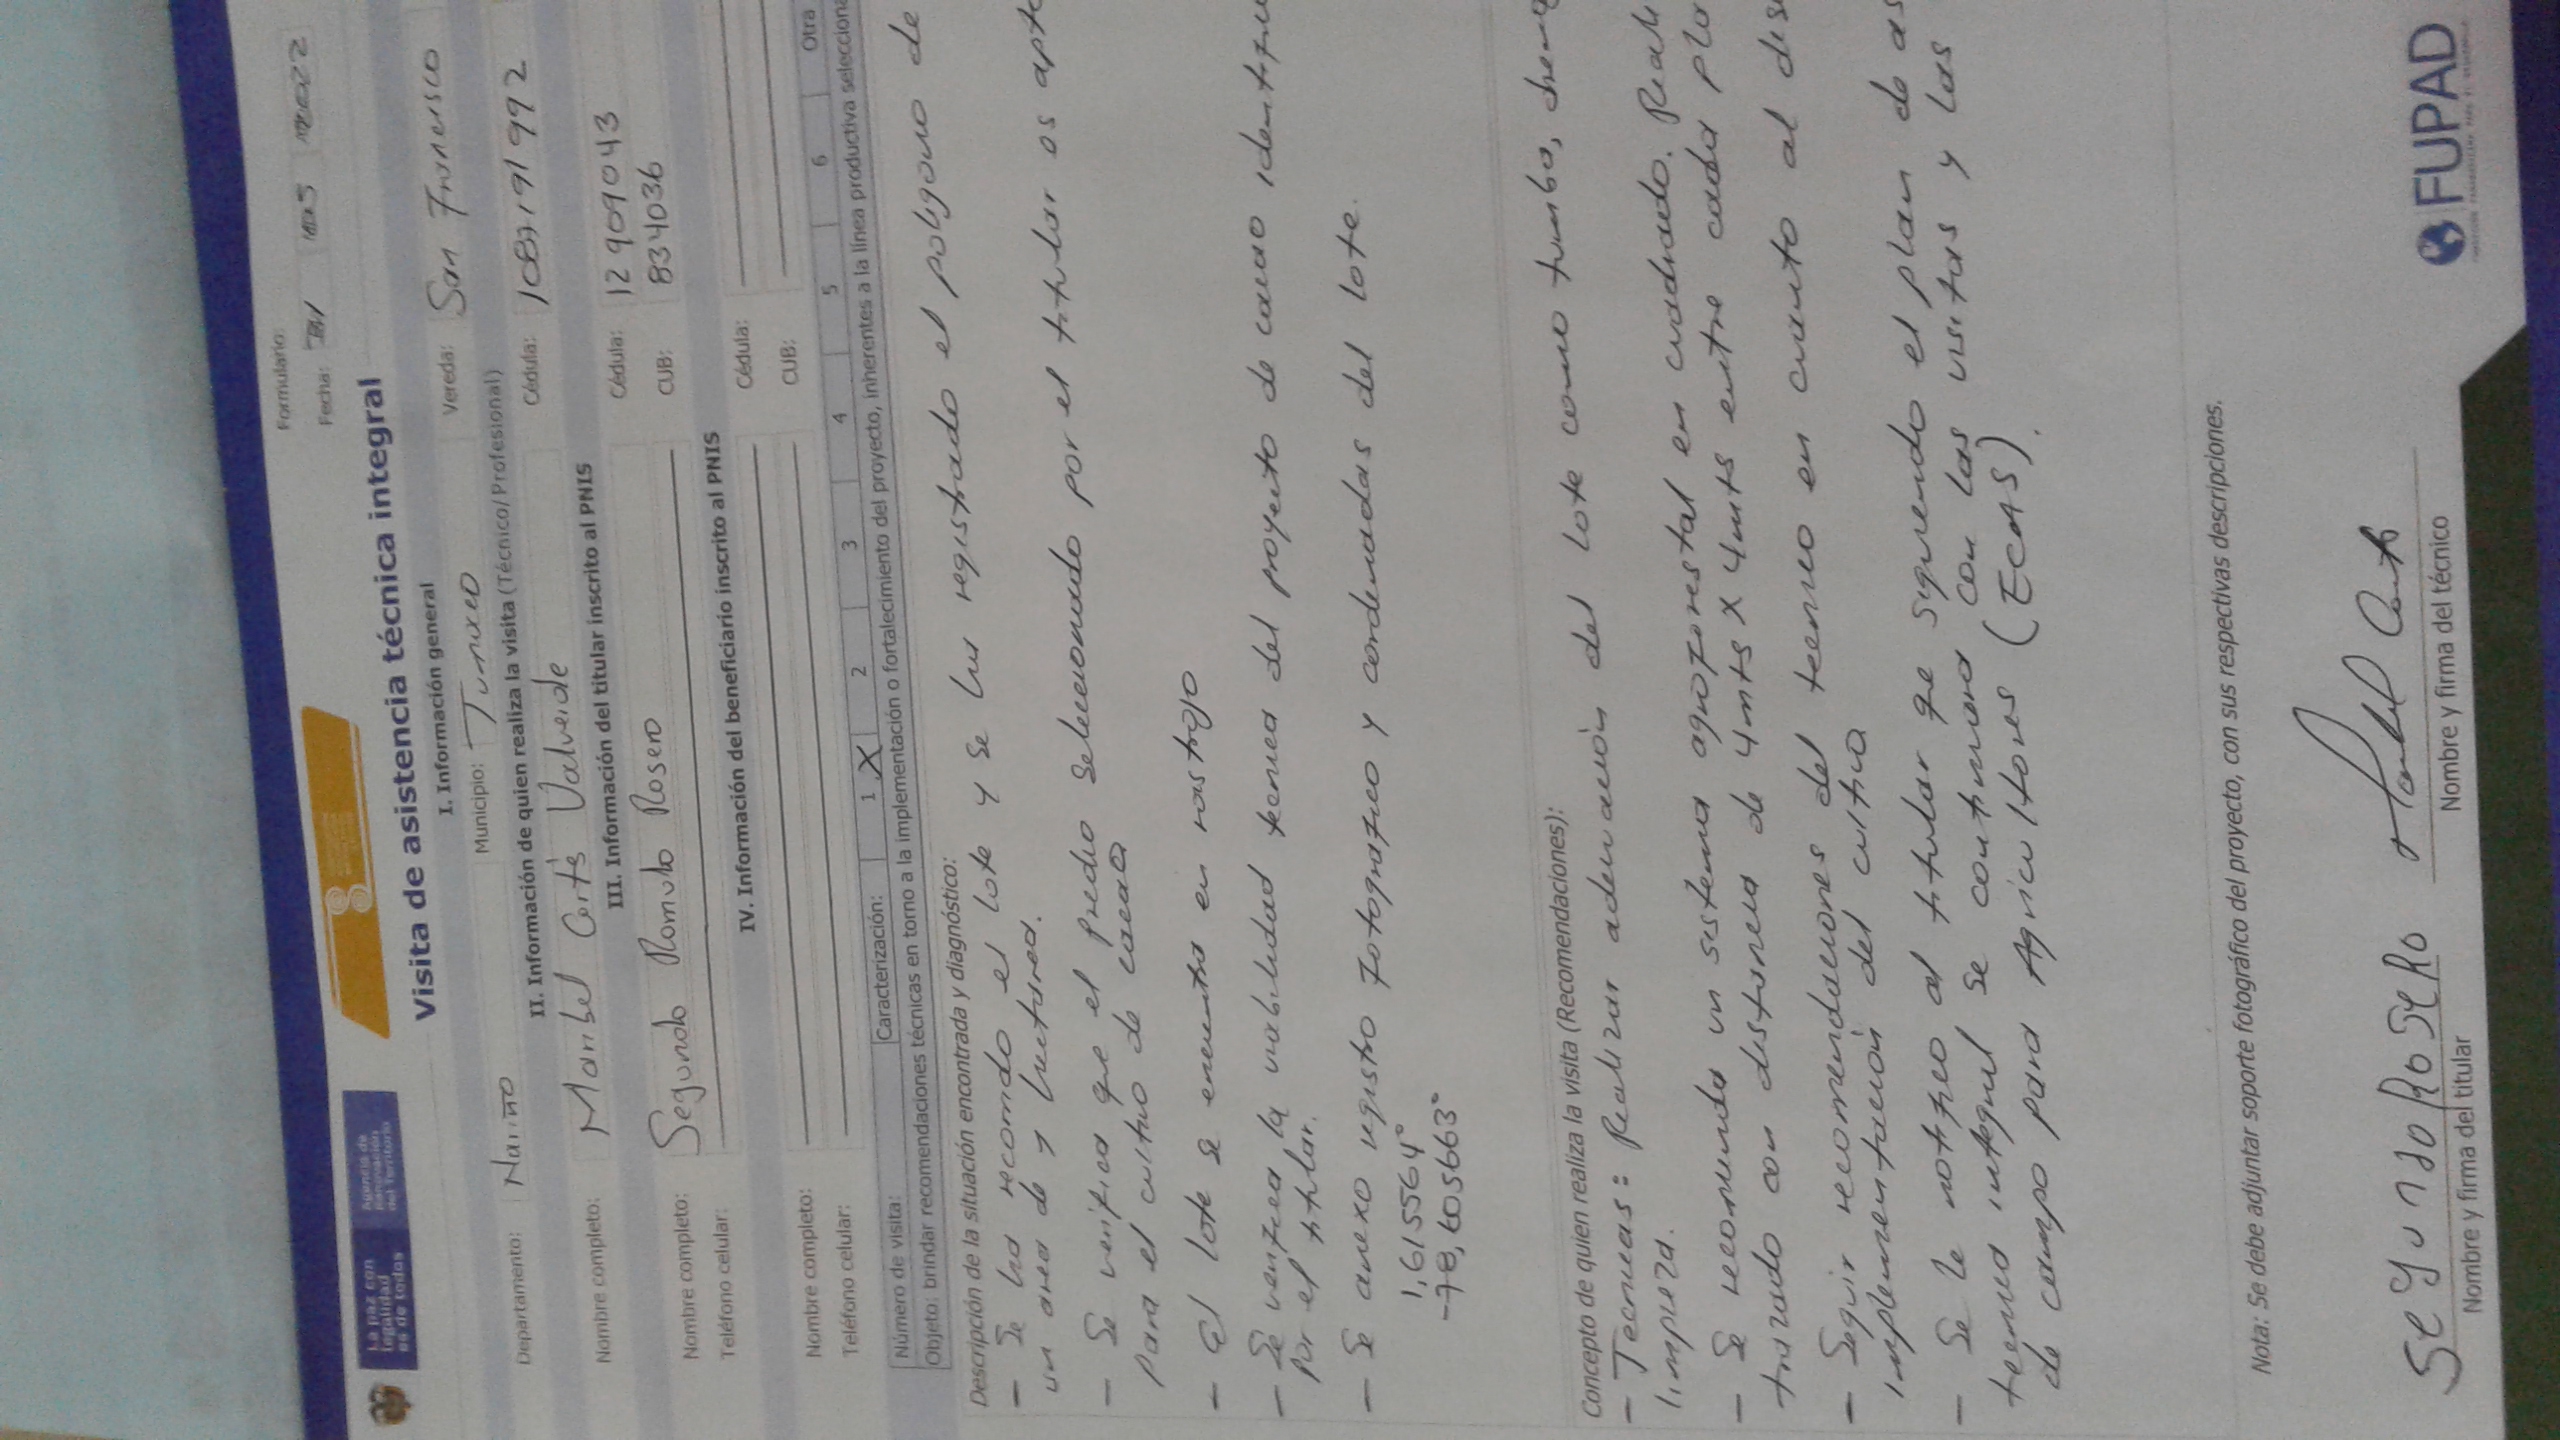 La paz con
legalidad
es de todos
Agencia de
Renovación
del Territorio
Formulario:
Fecha: 31 mas 2022
Visita de asistencia técnica integral
I. Información general
Departamento: Nariño Municipio: Tumaco Vereda: San Francisco
II. Información de quien realiza la visita (Técnico/Profesional)
Nombre completo: Maribel Cortés Valverde Cédula: 1087191992
III. Información del titular inscrito al PNIS
Nombre completo: Segundo Romulo Rosero Cédula: 12909043
Teléfono celular: CUB: 834036
IV. Información del beneficiario inscrito al PNIS
Nombre completo: Cédula:
Teléfono celular: CUB:
Número de visita: Caracterización: 1 X 2 3 4 5 6 Otra
Objeto: brindar recomendaciones técnicas en torno a la implementación o fortalecimiento del proyecto, inherentes a la línea productiva selecciona
Descripción de la situación encontrada y diagnóstico:
- Se ha recorrido el lote y se ha registrado el poligono de
un area de 1 hectarea.
- Se verifica que el Predio seleccionado por el titular es apto
para el cultivo de cacao
- El lote se encuentra en rastrojo
- Se verifica la viabilidad tecnica del proyecto de cacao identifi
por el titular.
- Se anexo registro fotografico y cordenadas del lote.
1,615564°
-78,605663°
Concepto de quien realiza la visita (Recomendaciones):
- Tecnicas: Realizar adecuación del lote como tumba, drena
limpieza.
- Se recomienda un sistema agroforestal en cuadrado. Reali
trazado con distancia de 4mts x 4mts entre cada pla
- Seguir recomendaciones del tecnico en cuanto al dise
implementación del cultivo
- Se le notifico al titular que siguiendo el plan de as
tecnica integral se continuara con las visitas y las
de campo para Agricultores (Ecas).
Nota: Se debe adjuntar soporte fotográfico del proyecto, con sus respectivas descripciones.
SeGundo RoSeRo Maribel Cortés
Nombre y firma del titular Nombre y firma del técnico
FUPAD